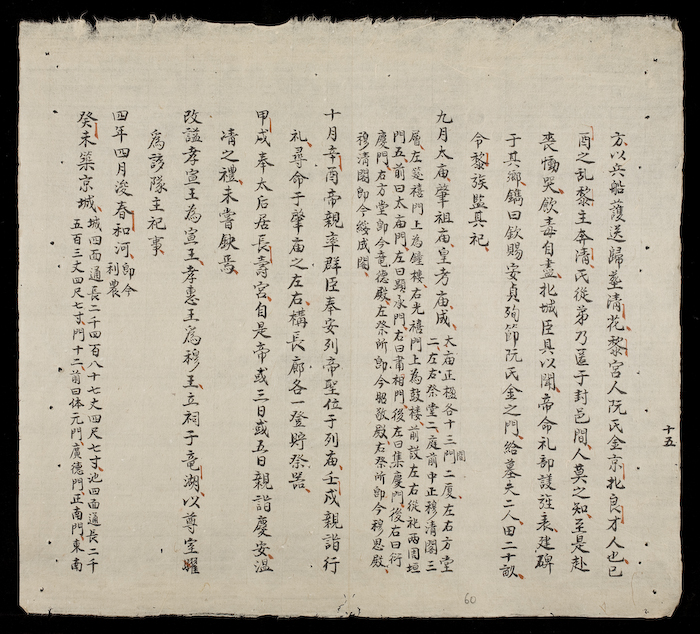 十五
方以兵船護送歸葬清花黎宮人阮氏金京北良才人也己
酉之乱黎主奔清氏從弟乃匿于封邑間人莫之知至是赴
喪慟哭飲毒自盡北城臣具以聞帝命礼部議旌表建碑
于其鄉鐫曰欽賜安貞殉節阮氏金之門給墓夫二人田二十畝
令黎族監其祀
九月太庙肇祖庙皇考庙成
太庙正楹各十三間二厦左右方堂
二左右祭堂二庭前中正穆清閣三
層左延禧門上為鍾楼右光禧門上為鼓楼前設左右從祀兩围垣
門五前曰太庙門左曰顕承門右曰肅相門後左曰集慶門後右曰衍
慶門右方堂即今竜德殿左祭所即今昭敬殿右祭所即今穆思殿
穆清閣即今绥成閣
十月辛酉帝親率群臣奉安列帝聖位于列庙壬戌親詣行
礼尋命于肇庙之左右構長廊各一登貯祭器
甲戌奉太后居長壽宮自是帝或三日或五日親詣慶安温
清之禮未嘗缺焉
改謚孝宣王為宣王孝惠王為穆王立祠于竜湖以尊室曜
為該隊主祀事
四年四月浚春和河
即今
利農
癸未築京城
城四面通長二千四百八十七丈四尺七寸池四面通長二千
五百三丈四尺七寸門十二前曰体元門廣德門正南門東南
60